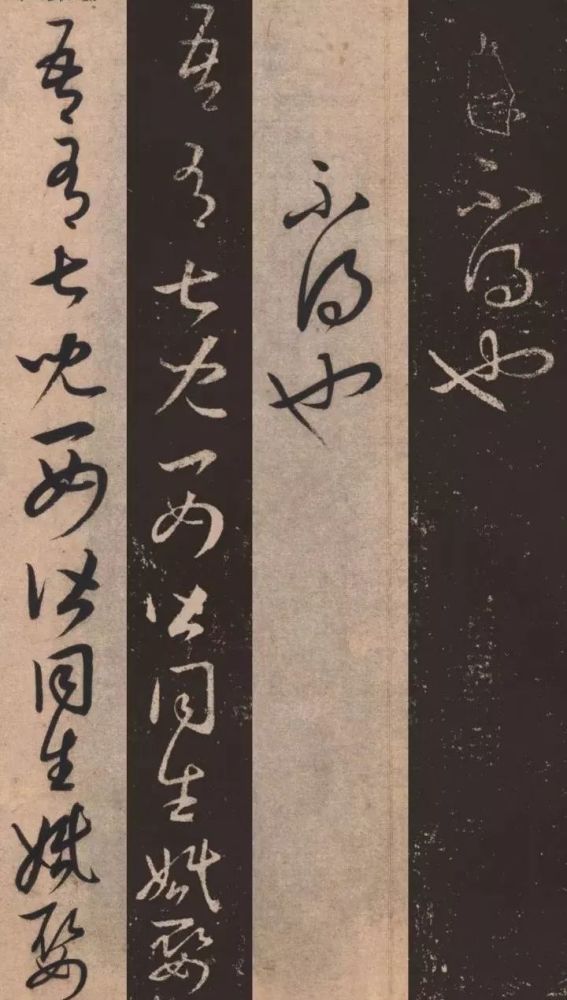 不得也
不得也
吾有七兒一女皆同生婚娶
吾有七兒一女皆同生婚娶